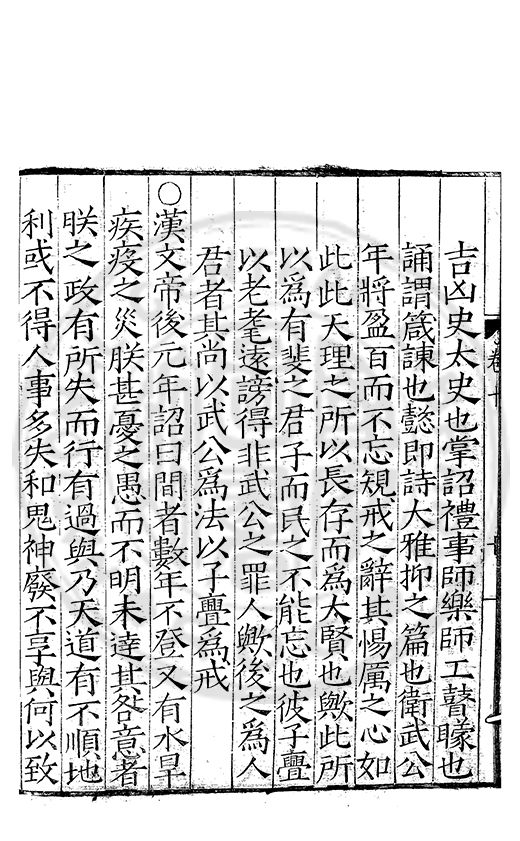 卷十
十
吉凶史太史也掌詔禮事師樂師工瞽矇也
誦謂箴諫也懿即詩大雅抑之篇也衛武公
年將盈百而不忘規戒之辭其惕厲之心如
此此天理之所以長存而為大賢也歟此所
以為有斐之君子而民之不能忘也彼子亹
以老耄遠謗得非武公之罪人歟後之為人
君者其尚以武公為法以子亹為戒
○漢文帝後元年詔曰間者數年不登又有水旱
疾疫之災朕甚憂之愚而不明未達其咎意者
朕之政有所失而行有過與乃天道有不順地
利或不得人事多失和鬼神廢不享與何以致